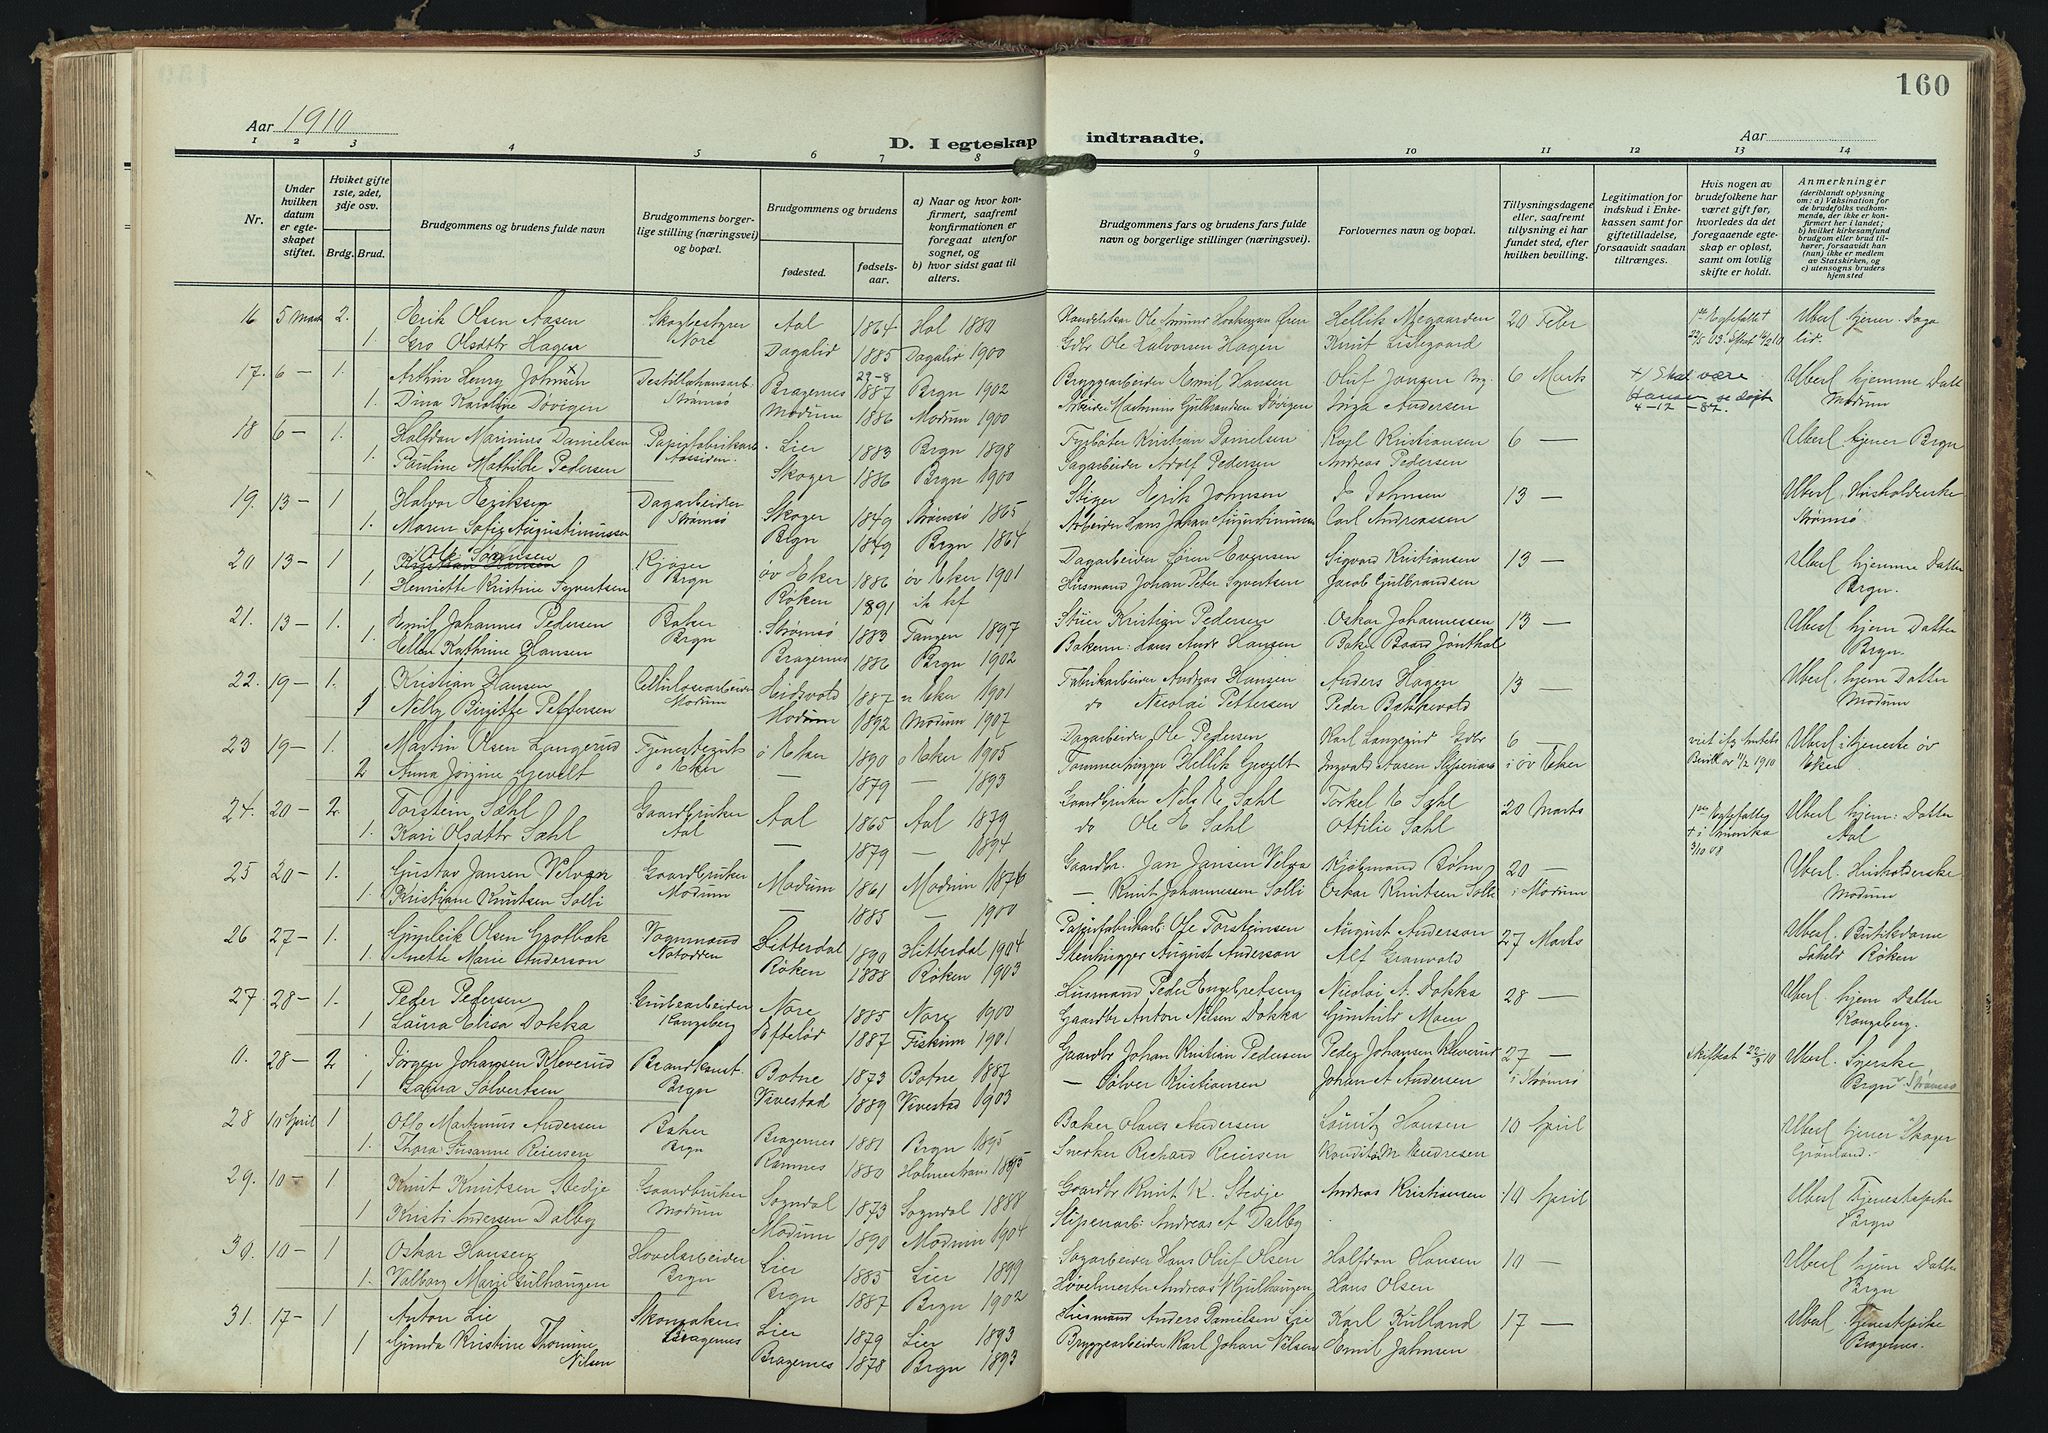 160
Aar 1910
D. I egteskap indtraadte.
Aar
1 2 3 4 5 6 7 8 9 10 11 12 13 14
Nr.
Under hvilken datum er egteskapet stiftet.
Hviket gifte 1ste, 2det, 3dje osv.
Brdg. Brud.
Brudgommens og brudens fulde navn
Brudgommens borgerlige stilling (næringsvei) og bopæl.
Brudgommens og brudens
fødested.
fødselsaar.
a) Naar og hvor konfirmert, saafremt konfirmationen er foregaat utenfor sognet, og
b) hvor sidst gaat til alters.
Brudgommens fars og brudens fars fulde navn og borgerlige stillinger (næringsvei).
Forlovernes navn og bopæl.
Tillysningsdagene eller, saafremt tillysning ei har fundet sted, efter hvilken bevilling.
Legitimation for indskud i Enkekassen samt for giftetilladelse, forsaavidt saadan tiltrænges.
Hvis nogen av brudefolkene har været gift før, hvorledes da det foregaaende egteskap er opløst, samt om lovlig skifte er holdt.
Anmerkninger
(deriblandt oplysning om: a) Vaksination for de brudefolks vedkommende, der ikke er konfirmert her i landet; b) hvilket kirkesamfund brudgom eller brud tilhører, forsaavidt han (hun) ikke er medlem av Statskirken, og c) utensogns bruders hjemsted
16 5 Marts 2. Erik Olsen Aasen Skogbestyrer Aal 1864 Hol 1880 Hellik Megaarden 20 Febr
1. Gro Olsdatr Hagen Nore Dagalid 1885 Dagalid 1900 Gdbr Ole Halvorsen Hagen Knut Listegaard
17. 6 — 1. Arthur Henry Johnsen Destillationsarb. Bragernes 29-8 1887 Brgn 1902 Bryggearbeider Emil Hansen Oluf Jansen Brg. 6 Marts +) Skal være Hansen se døpt 4-12-82. Uberl hjemme Datt
1. Dina Karoline Døvigen Strømsø Modum 1886 Modum 1900 Arbeider Martinius Gulbrandsen Døvigen Inga Andersen Modum
18 6 — 1. Halfdan Marinius Danielsen Papirfabrikarb. Lier 1883 Brgn 1898 Fyrbøter Kristian Danielsen Karl Kristiansen 6 — Uberl tjener Brgn
1. Pauline Mathilde Pedersen Aassiden. Skoger 1886 Brgn 1900 Sagarbeider Adolf Pedersen Andreas Pedersen
19. 13 — 1 Halvor Eriksen Dagarbeider Skoger 1849 Strømsø 1865 Stiger Erik Johnsen Johnsen 13 —
1. Maren Sofie Augustinussen Strømsø Brgn 1849 Brgn 1864 Arbeider Hans Johan Augustinussen Carl Andreassen Strømsø
20 13 — 1 Ole Sørensen Kjører øv Eker 1886 øv Eker 1901 Dagarbeider Søren Evensen Sigvard Kristiansen 13 — Uberl hjemme Datter
1. Henriette Kristine Syvertsen Brgn Røken 1891 Husmand Johan Peter Syvertsen Jacob Gulbrandsen Brgn.
21. 13 — 1. Emil Johannes Pedersen Baker Strømsø 1883 Tangen 1897 Kristian Pedersen Oskar Johannessen 13 — Uberl hjem Datter
1. Ellen Kathrine Hansen Brgn Bragernes 1886 Brgn 1902 Bakerm: Hans Andr Hansen Brgn.
22. 19 — 1. Kristian Hansen Cellulosearbeider Eidsvold 1887 Eker 1901 Fabrikarbeider Andreas Hansen Anders Hagen 13 — Uberl hjem Datter
1 Nelly Birgitte Pettersen Modum Modum 1892 Modum 1907 do Nicolai Pettersen Peder Bakkevold Modum
23 19 — 1. Martin Olsen Langerud Tjenestegut ø Eker 1890 ø Eker 1905 Dagarbeider Ole Pedersen Karl Langerud Gdbr 6
2 Anna Jørgine Gevelt ø Eker — 1879 — 1893 Tømmerhugger Hellik Gevelt Ingvald Aasen Sliperiarb i øv Eker Uberl i tjeneste øv Eker
24. 20 — 2 Torstein Sæhl Gaardbruker Aal 1865 Aal 1879 Gaardbruker Nels E Sæhl Torkel E Sæhl 20 Marts Uberl hjem: Datter
1. Kari Olsdatr Sæhl Aal — 1879 — 1894 do Ole E Sæhl Ottilie Sæhl Aal
25 20 — 1. Gustav Jansen Velven Gaardbruker Modum 1861 Modum 1876 Gaardbr. Jan Jansen Kjøbmand Bøhn 20 — Uberl. Husholderske
1 Kristiane Knutsen Solli Modum — 1885 — 1900 — Knut Johannessen Solli Oskar Knutsen Solli i Modum Modum
26 27 — 1. Gunleik Olsen Grotbæk Vognmand Hitterdal 1890 Hitterdal 1904 Papirfabrikarb: Ole Torsteinsen August Anderson 27 Marts Uberl. Butikdame
1. Anette Marie Anderson Notodden Røken 1888 Røken 1903 Stenhugger August Anderson Alf Granvold Røken
27. 28 — 1. Peder Pedersen Grubearbeider Nore 1885 Nore 1900 Husmand Peder Engebretsen Nicolai A. Dokka 28 — Uberl. hjem Datter
1 Laura Elisa Dokka Kongsberg Efteløt 1887 Fiskum 1901 Gaardbr Anton Nilsen Dokka Gunhild Moen Kongsberg.
0. 28 — 2 Jørgen Johansen Kleverud Brandkonst. Botne 1873 Botne 1887 Gaardbr Johan Kristian Pedersen Peder Johansen Kleverud 27 — Skiftest 22/3 10 Uberl.
1 Laura Sølvertsen Brgn Vivestad 1889 Vivestad 1903 — Sølver Kristiansen Johan A Andersen i Strømsø Brgn Strømsø
28 10 April 1 Otto Martinius Andersen Baker Bragernes 1881 Brgn 1895 Baker Olaves Andersen Lauritz Hansen 10 April Uberl tjener Skoger
1. Thora Susanne Reiersen Brgn Ramnes 1880 Holmestrand 1895 Snekker Richard Reiersen Konditor M Endresen Grønland.
29. 10 — 1 Knut Knutsen Stedje Gaardbruker Sogndal 1873 Sogndal 1888 Gaardbr Knut K. Stedje Andreas Kristiansen 10 April Uberl Tjenestepike
1 Kristi Andersen Dalby Modum Modum 1890 Modum 1904 Sliperiarb: Andreas A Dalby Brgn
30. 10 — 1 Oskar Hansen Høvelarbeider Lier 1885 Lier 1899 Sagarbeider Hans Oluf Olsen Halfdan Hansen 10 — Uberl hjem Datter
1. Valborg Marie Gulhaugen Brgn Brgn 1887 Brgn 1902 Høvelmester Andreas Gulhaugen Hans Olsen Brgn
31. 17 — 1 Anton Lie Skomaker Lier 1879 Lier 1893 Husmand Anders Danielsen Lie Karl Kulland 17 — Uberl. Tjenestepike
1 Gunda Kristine Thomine Nilsen Bragernes Bragernes 1878 Brgn 1893 Bryggearbeider Karl Johan Nilsen Emil Jahnsen Bragernes.